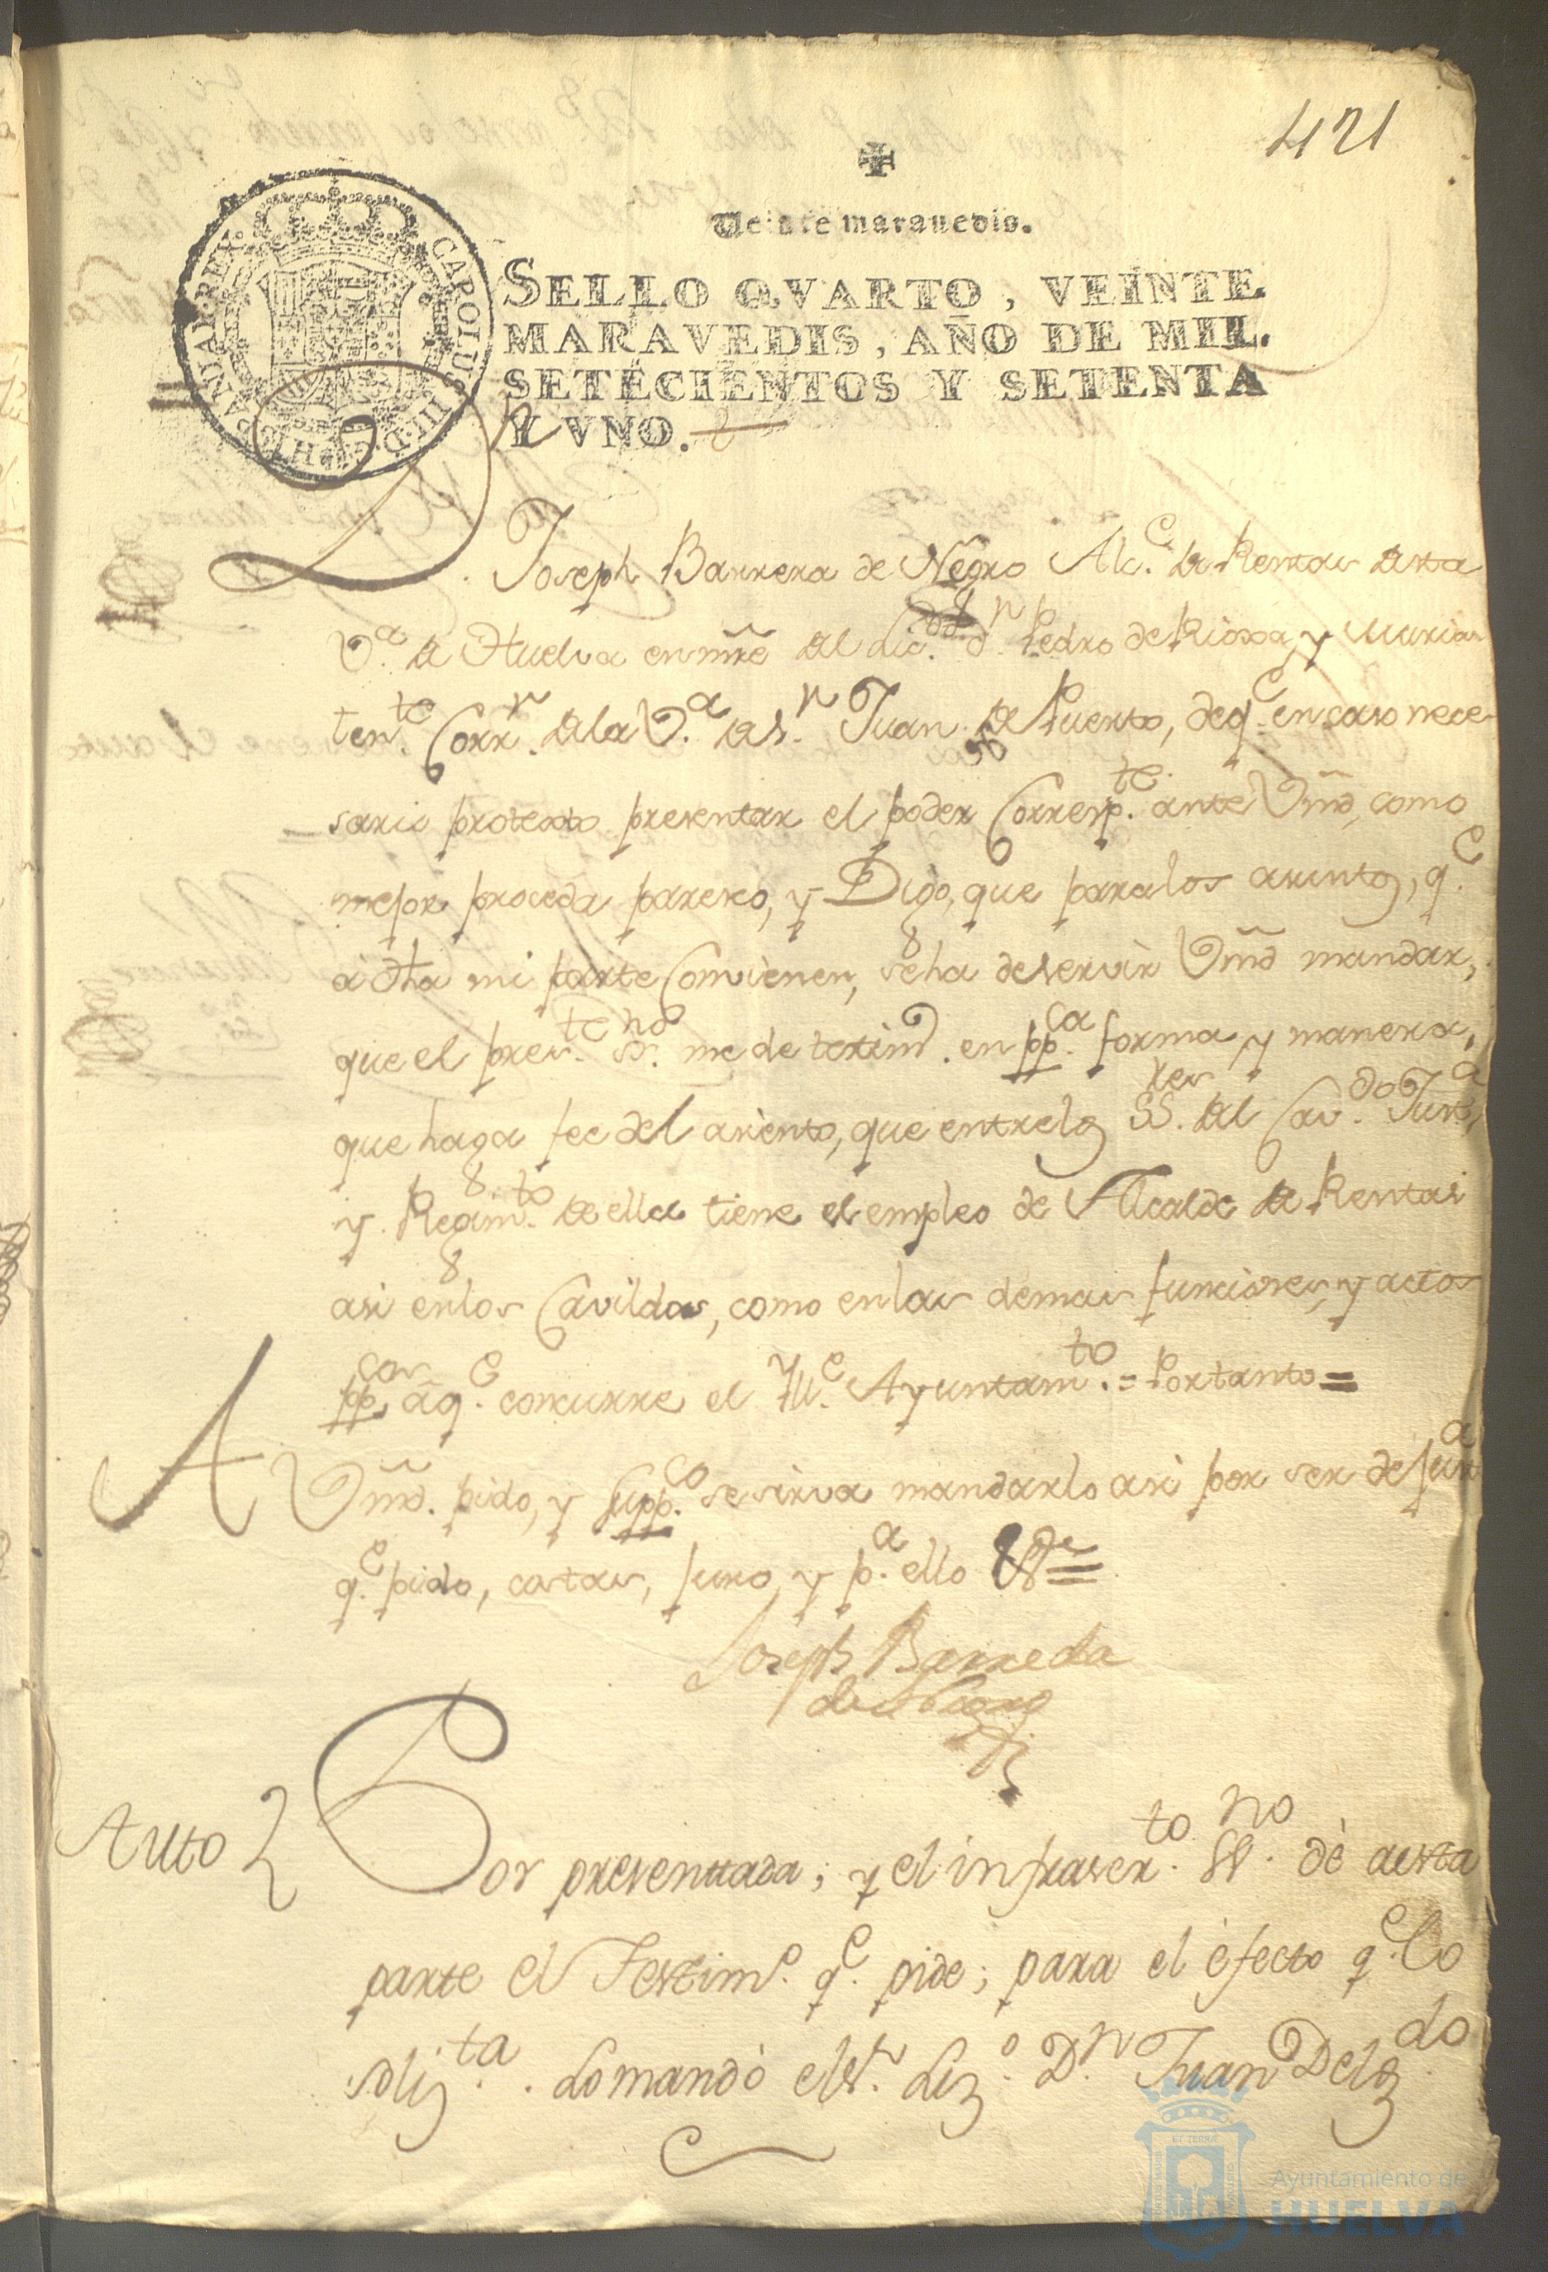 421
Veinte maravedis.
SELLO QVARTO, VEINTE
MARAVEDIS, AÑO DE MIL.
SETECIENTOS Y SETENTA
Y VNO.
CAROLUS III D G HISPANIAR REX
Dn
Joseph Barrera de Negro Alc.e de Rentas desta
V.a de Huelva en nre del lic.do d.n Pedro de Rioxa, y Murias
ten.te Corr.r de la V.a de s.n Juan del Puerto, de q.e en caso nece
sario protexto presentar el poder Corresp.te ante Vmd, como
mejor proceda paresco, y Digo, que para los asuntos, q.e
à dha mi parte Convienen, se ha de servir Vmd mandar,
que el pres.te ss.no me de testim.o en pp.ca forma y manera,
que haga fee del asiento, que entre los SS.res del Cav.do Just.a
y Regim.to de ella tiene el empleo de Alcalde de Rentas
asi en los Cavildos, como en las demas funciones, y actos
pp.cos à q.e concurre el Ylle. Ayuntam.to = Portanto =
A Vmd. pido, y supp.co se sirva mandarlo asi por ser de just.a
q.e pido, costas, juro, y p.a ello &.a =
Joseph Barreda
de Negro
Auto
Por presenttada; y el infrascr.to SS.no dè a esta
parte el Testim.o q.e pide; para el efecto q.e lo
soliz.ta. Lo mandò el s.r Liz.o D.n Juan Delg.do
Ayuntamiento de
HUELVA